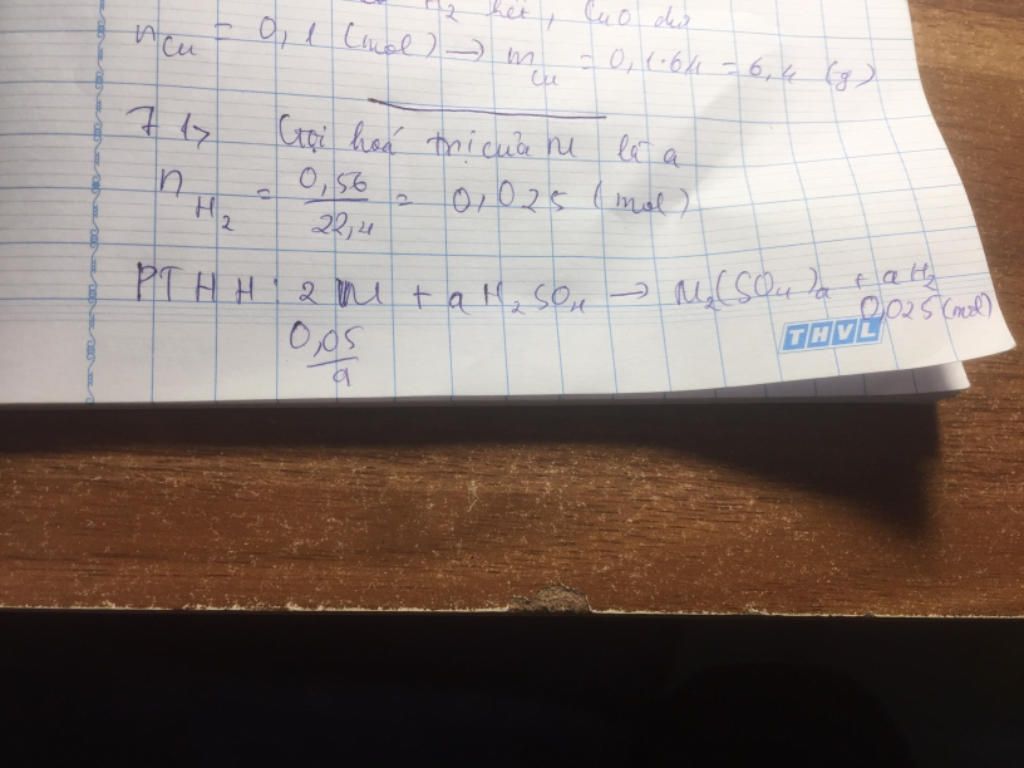 H2 hết, CuO dư
nCu = 0,1 (mol) → mCu = 0,1.64 = 6,4 (g)
7 1> Gọi hoá trị của M là a
nH2 = 0,56/22,4 = 0,025 (mol)
PTHH: 2M + aH2SO4 → M2(SO4)a + aH2
0,05/a 0,025 (mol)
THVL